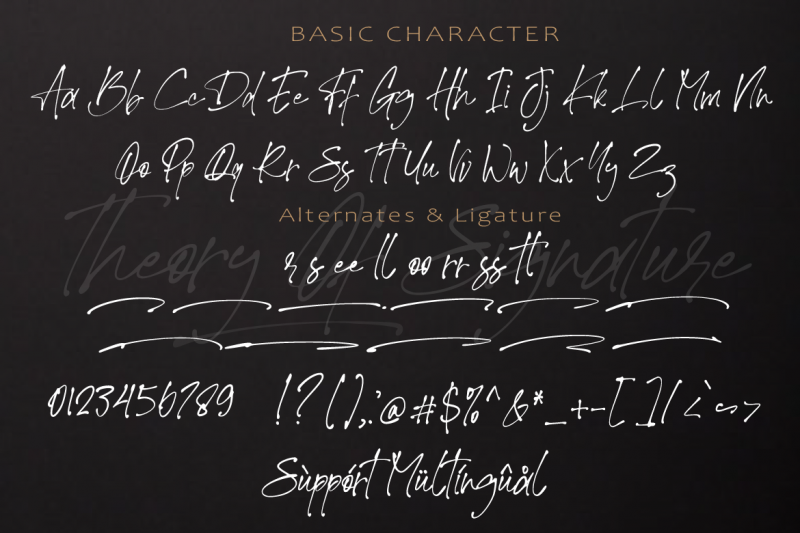 BASIC CHARACTER
Aa Bb Cc Dd Ee Ff Gg Hh Ii Jj Kk Ll Mm Nn
Oo Pp Qq Rr Ss Tt Uu Vv Ww Xx Yy Zz
Theory Of Signature
Alternates & Ligature
r s ee ll oo rr ss tt
0123456789 !?(),.'@#$%^&*_+-[]|
Sùppórt Mültíngûål